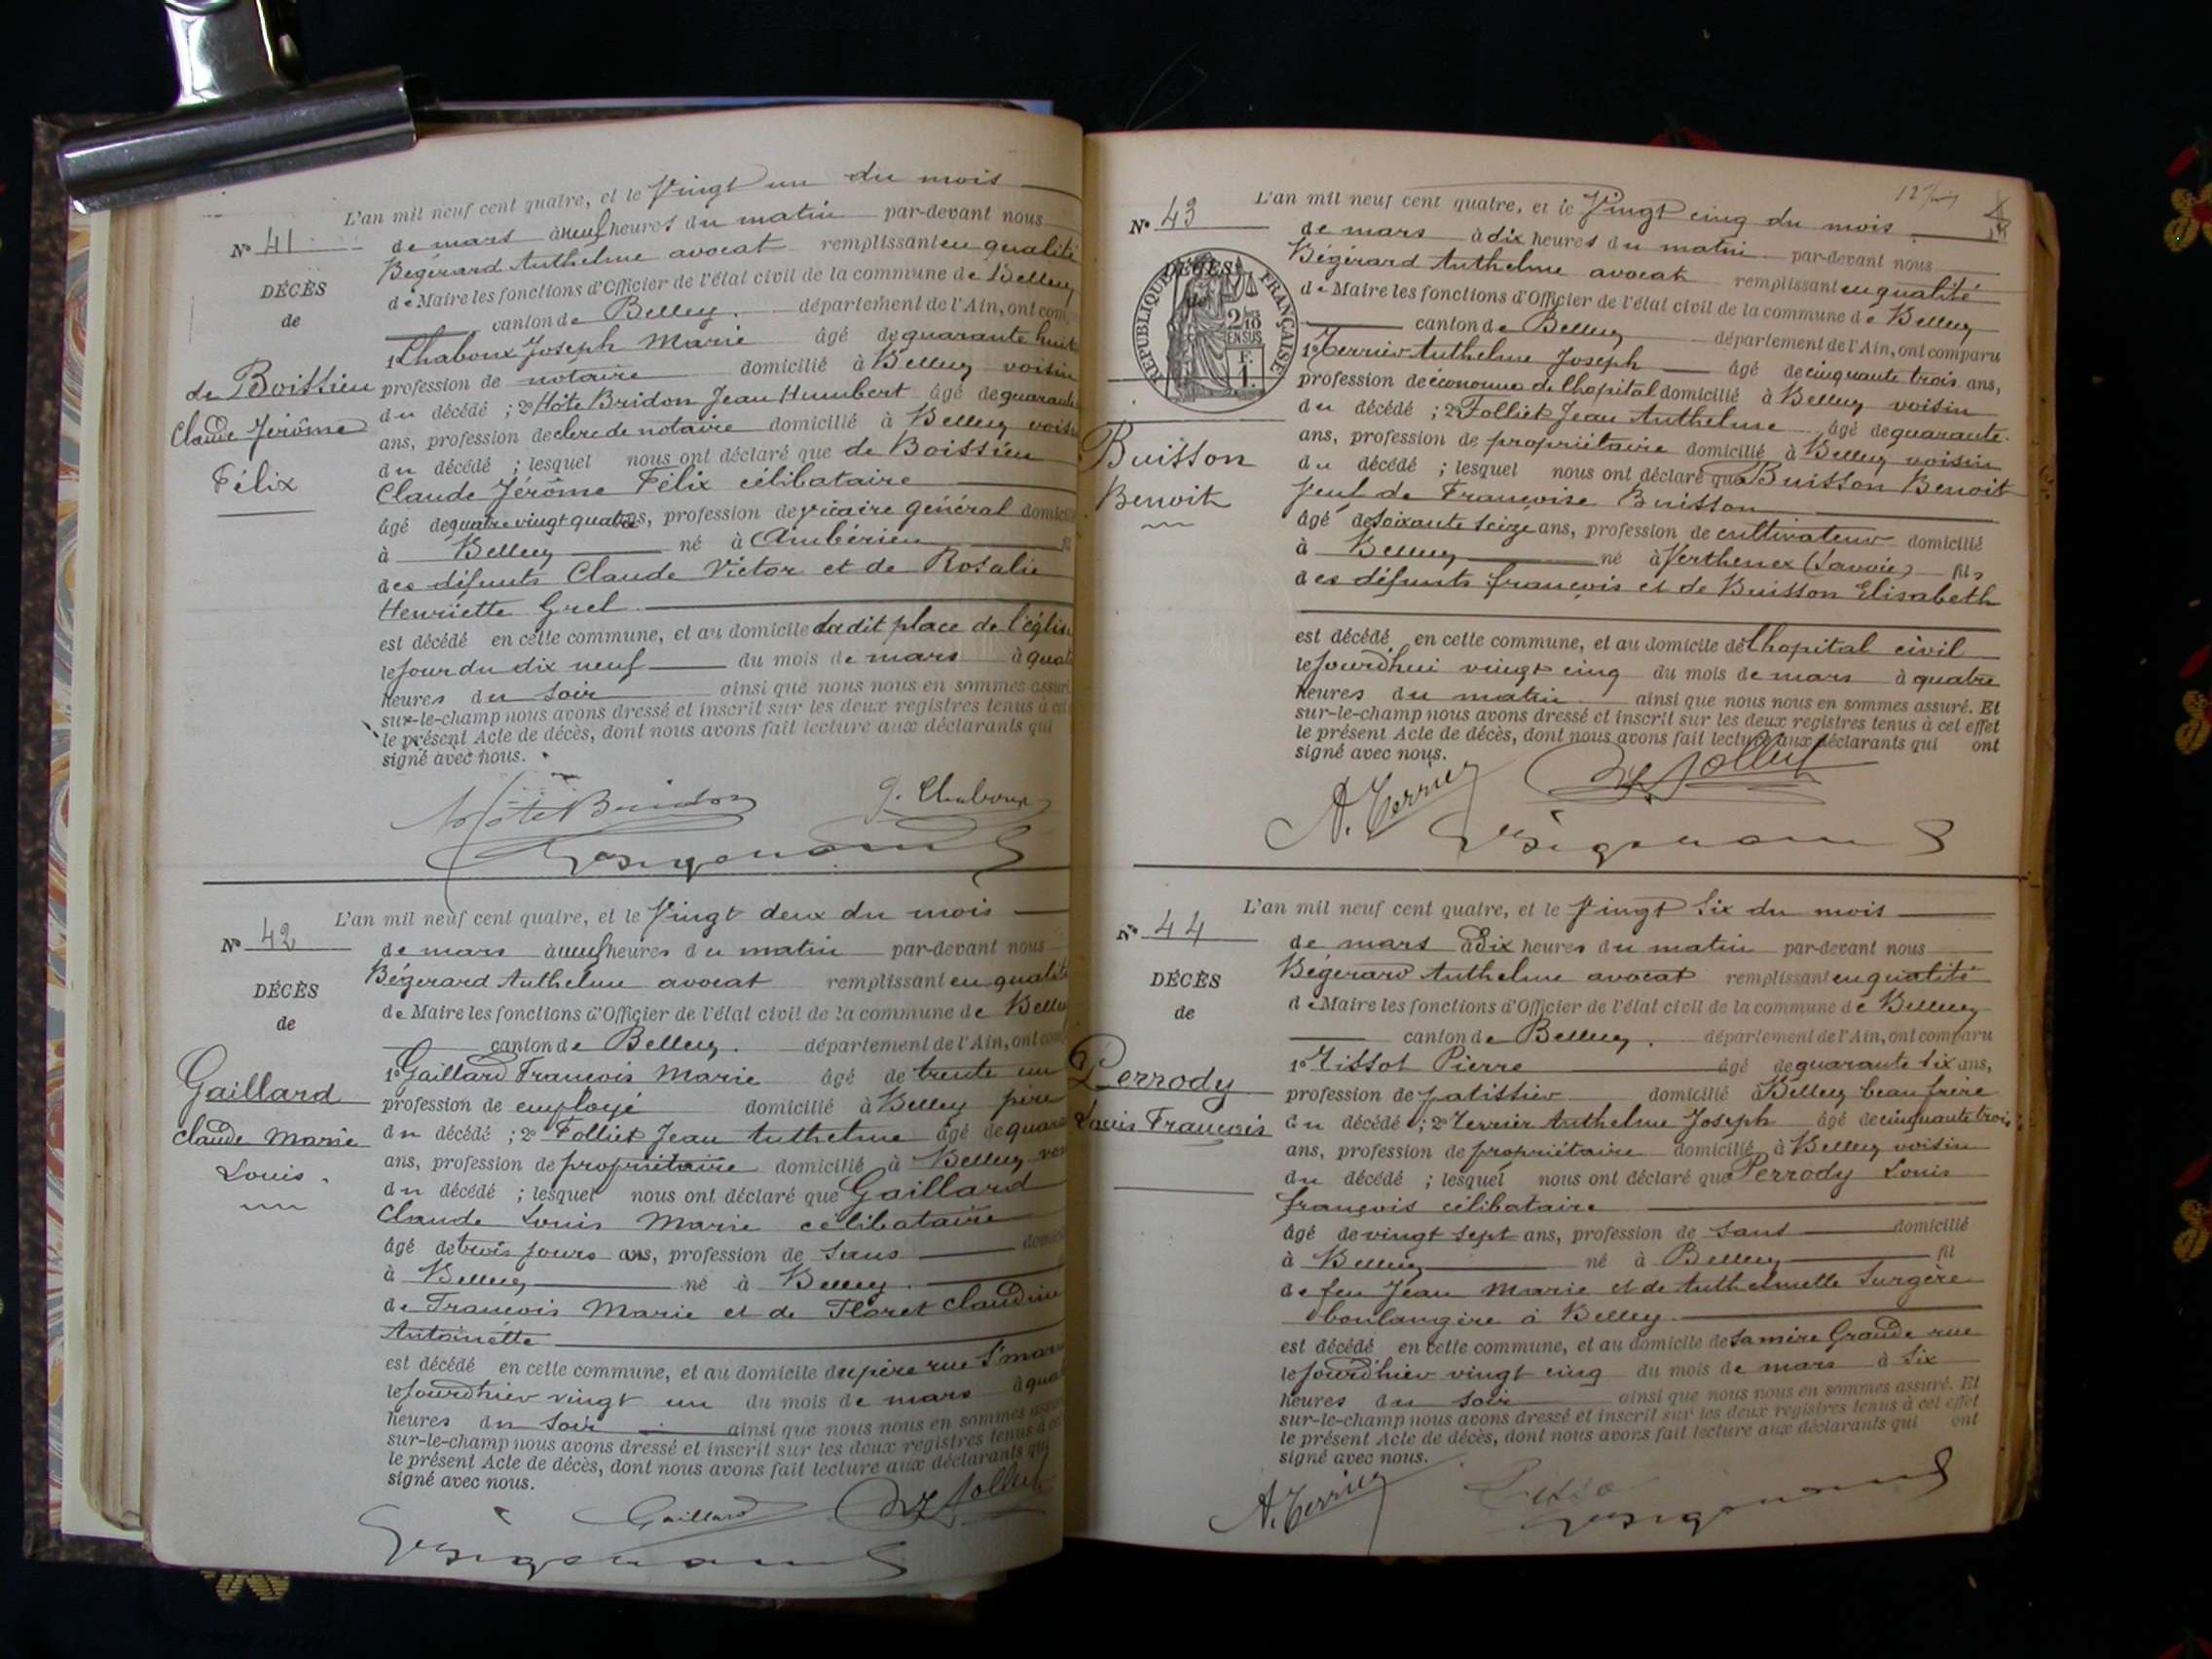 L'an mil neuf cent quatre, et le Vingt un du mois
N° 41
de mars à neuf heures du matin par-devant nous
Bégérard Anthelme avocat remplissant en qualité
DÉCÈS
de Maire les fonctions d'Officier de l'état civil de la commune de Belley
de
canton de Belley. département de l'Ain, ont com
1° Chaboux Joseph Marie âgé de quarante huit
de Boissieu
Claude Jérôme
Félix
profession de notaire domicilié à Belley voisin
du décédé ; 2° Hôte Bridon Jean Humbert âgé de quarante
ans, profession de clerc de notaire domicilié à Belley voisin
du décédé ; lesquel nous ont déclaré que de Boissieu
Claude Jérôme Félix célibataire
âgé de quatre vingt quatre ans, profession de vicaire général domicilié
à Belley né à Ambérieu
des défunts Claude Victor et de Rosalie
Henriette Grel
est décédé en cette commune, et au domicile du dit place de l'église
le jour du dix neuf du mois de mars à quat
heures du soir ainsi que nous nous en sommes assuré
sur-le-champ nous avons dressé et inscrit sur les deux registres tenus à cet
le présent Acte de décès, dont nous avons fait lecture aux déclarants qui
signé avec nous.
Hôte Bridon J. Chaboux
L'an mil neuf cent quatre, et le Vingt deux du mois
N° 42
de mars à neuf heures du matin par-devant nous
Bégérard Anthelme avocat remplissant en qualité
DÉCÈS
de Maire les fonctions d'Officier de l'état civil de la commune de Belley
de
canton de Belley. département de l'Ain, ont com
Gaillard
Claude Marie
Louis.
1° Gaillard François Marie âgé de trente un
profession de employé domicilié à Belley père
du décédé ; 2° Folliet Jean Anthelme âgé de quara
ans, profession de propriétaire domicilié à Belley voi
du décédé ; lesquel nous ont déclaré que Gaillard
Claude Louis Marie célibataire
âgé de trois jours ans, profession de sans domicilié
à Belley né à Belley.
de François Marie et de Floret Claudine
Antoinette
est décédé en cette commune, et au domicile du père rue St mar
le jourd'hier vingt un du mois de mars à qua
heures du soir ainsi que nous nous en sommes assuré
sur-le-champ nous avons dressé et inscrit sur les deux registres tenus à ce
le présent Acte de décès, dont nous avons fait lecture aux déclarants qui
signé avec nous.
Gaillard Folliet
L'an mil neuf cent quatre, et le Vingt cinq du mois
N° 43
de mars à dix heures du matin par-devant nous
Bégérard Anthelme avocat remplissant en qualité
RÉPUBLIQUE FRANÇAISE
DÉCÈS
de
2/10 EN SUS
F. 1.
de Maire les fonctions d'Officier de l'état civil de la commune de Belley
canton de Belley département de l'Ain, ont comparu
1° Terrier Anthelme Joseph âgé de cinquante trois ans,
profession de économe de l'hopital domicilié à Belley voisin
du décédé ; 2° Folliet Jean Anthelme âgé de quarante
Buisson
Benoit
ans, profession de propriétaire domicilié à Belley voisin
du décédé ; lesquel nous ont déclaré que Buisson Benoit
Veuf de Françoise Buisson
âgé de soixante seize ans, profession de cultivateur domicilié
à Belley né à Verthenex (Savoie) fils
des défunts françois et de Buisson Elisabeth
est décédé en cette commune, et au domicile de l'hopital civil
le jourd'hui vingt cinq du mois de mars à quatre
heures du matin ainsi que nous nous en sommes assuré. Et
sur-le-champ nous avons dressé et inscrit sur les deux registres tenus à cet effet
le présent Acte de décès, dont nous avons fait lecture aux déclarants qui ont
signé avec nous.
A. Terrier Folliet
L'an mil neuf cent quatre, et le Vingt six du mois
N° 44
de mars à dix heures du matin par-devant nous
Bégerard Anthelme avocat remplissant en qualité
DÉCÈS
de Maire les fonctions d'Officier de l'état civil de la commune de Belley
de
canton de Belley. département de l'Ain, ont comparu
Perrody
Louis François
1° Tissot Pierre âgé de quarante six ans,
profession de patissier domicilié à Belley beau frère
du décédé ; 2° Terrier Anthelme Joseph âgé de cinquante trois
ans, profession de propriétaire domicilié à Belley voisin
du décédé ; lesquel nous ont déclaré que Perrody Louis
françois célibataire
âgé de vingt sept ans, profession de sans domicilié
à Belley né à Belley fil
de feu Jean Marie et de Anthelmette Surgère
boulangère à Belley
est décédé en cette commune, et au domicile de sa mère Grande rue
le jourd'hier vingt cinq du mois de mars à six
heures du soir ainsi que nous nous en sommes assuré. Et
sur-le-champ nous avons dressé et inscrit sur les deux registres tenus à cet effet
le présent Acte de décès, dont nous avons fait lecture aux déclarants qui ont
signé avec nous.
A. Terrier